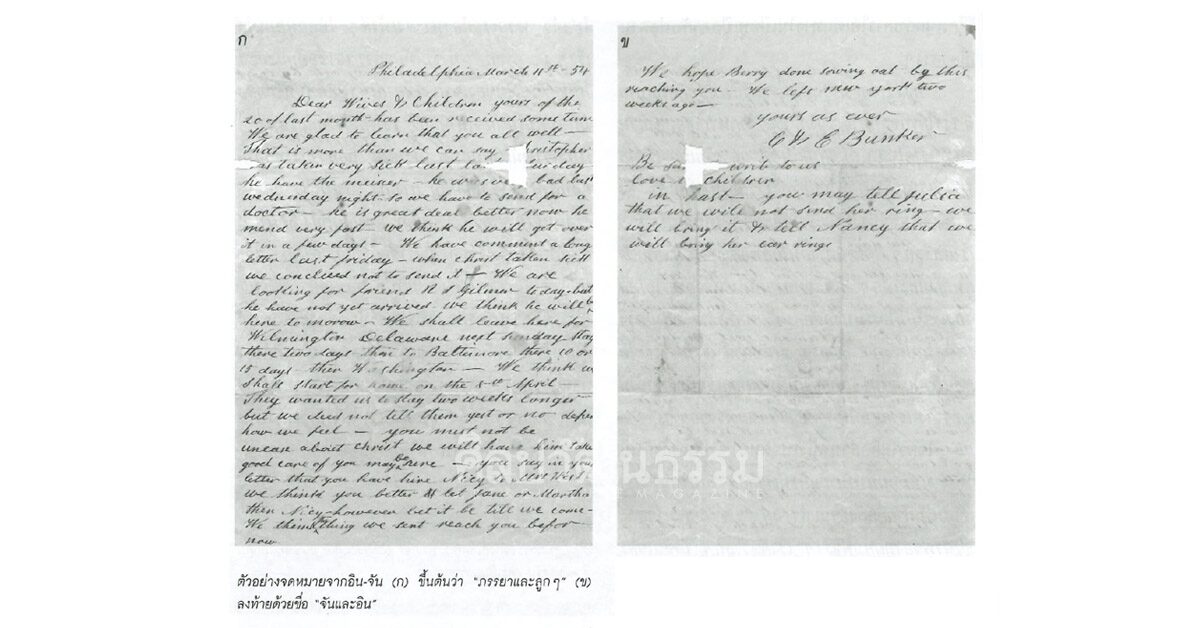 ก
Philadelphia March 11st - 54
Dear Wives & Children yours of the
20 of last month has been received some time
We are glad to learn that you all well —
That is more than we can say Christopher
was taken very sick last
he have the meiser — he was bad last
wednesday night. so we have to send for a
doctor — he is great deal better now he
mend very fast — we think he will get over
it in a few days — We have comment a long
letter last friday — when christ taken sick
we conclued not to send it — We are
looking for friend R S Gilmer to day but
he have not yet arrived we think he will be
here to morow — We shall leave here for
Wilmington Delaware next sunday stay
there two days then to Baltimore there 10 or
15 days then Washington — We think we
shall start for home on the April —
They wanted us to stay two weeks longer
but we did not tell them yest or no depen
how we feel — you must not be
unease about christ we will have him take
good care of you may be sure — you say in your
letter that you have hire Nicy
we think you better let Jane or Martha
then Nicy however let it be till we come —
We think thing we sent reach you befor
now
ข
We hope Berry done sowing oat by this
reaching you — We left new york two
weeks ago —
yours as ever
C & E Bunker
Be write to us
love children
in hast — you may tell julia
that we will not send her ring — we
will bring it & tell Nancy that we
will bring her ear rings
ศิลปวัฒนธรรม
MAGAZINE
ตัวอย่างจดหมายจากอิน-จัน (ก) ขึ้นต้นว่า "ภรรยาและลูกๆ" (ข)
ลงท้ายด้วยชื่อ "จันและอิน"